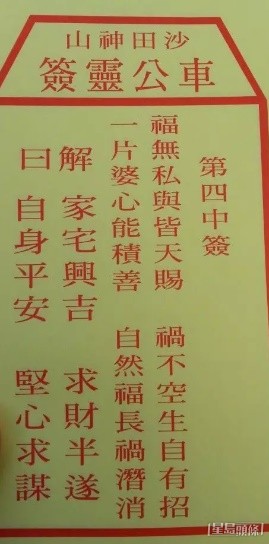 沙田神山
車公靈簽
第四中簽
福無私與皆天賜 禍不空生自有招
一片婆心能積善 自然福長禍潛消
解 家宅興吉 求財半遂
曰 自身平安 堅心求謀
星島頭條